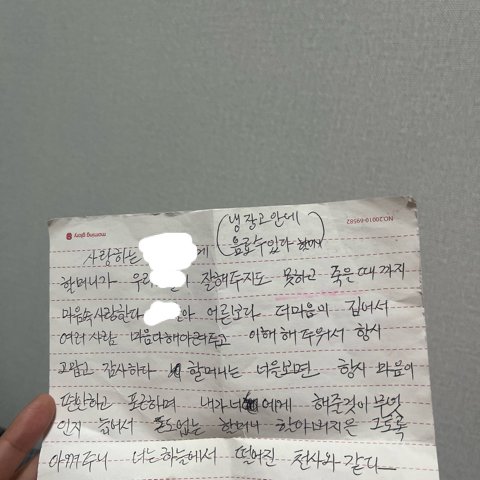 냉장고안에
음료수있다
morning glory
NO.20010-69582
사랑하는 에게
할머니가 우리 잘해두지도 못하고 죽은때까지
마음속사랑한다 야 어른보다 더마음의 집에서
여러사람 마음다해아려두고 이해해두워서 항시
고맙고 감사하다 할머니는 너을보면 항시 마음이
편안하고 포근하며 내가 에게 해줄것이 무엇
인지 늙어서 돈도없는 할머니 할아버지은 그토록
아껴주니 너는하늘에서 떨어진 천사와 같다